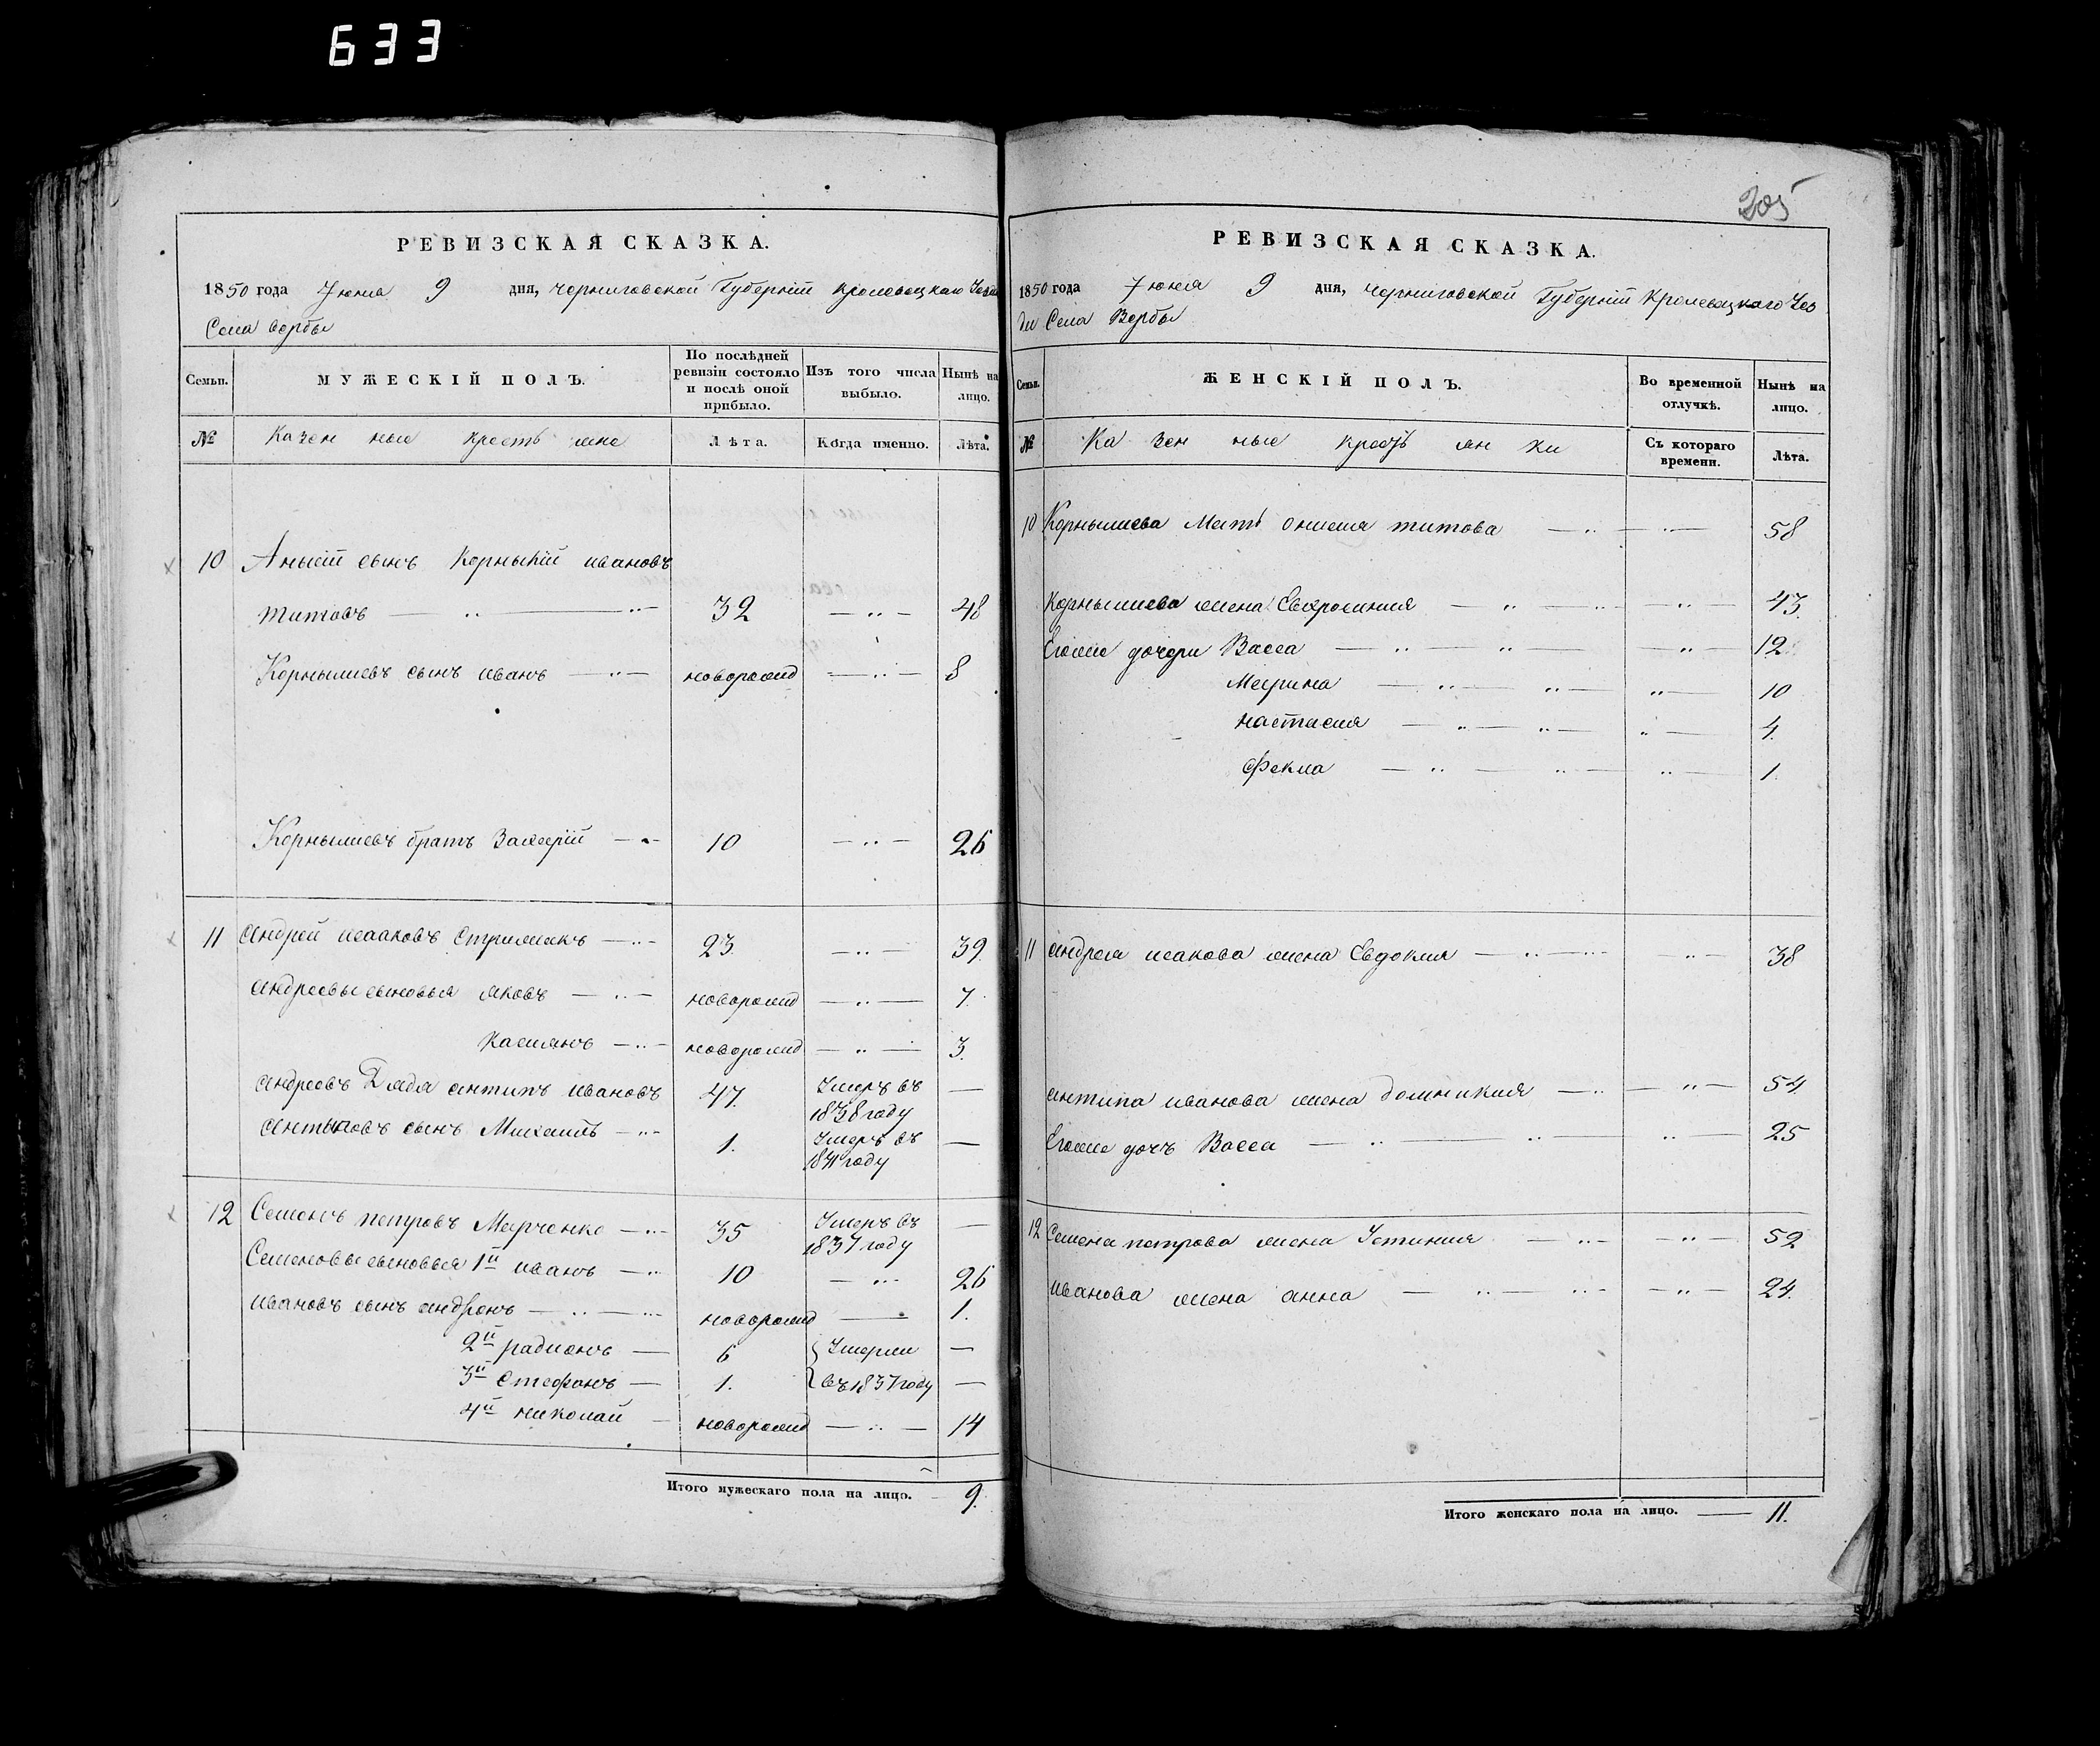 633
РЕВИЗСКАЯ СКАЗКА.
1850 года Июня 9 дня, Черниговской Губерніи Кролевецкаго Уезда
Села Вербы
Семьи.
МУЖЕСКІЙ ПОЛЪ.
По послѣдней ревизіи состояло и послѣ оной прибыло.
Изъ того числа выбыло.
Нынѣ на лицо.
№ Казенные крестьяне Лѣта. Когда именно. Лѣта.
10 Анысій сынъ Корнылій ивановъ
титовъ — „ — „ — 32 — „ — 48
Корнылиевъ сынъ иванъ — „ — новорожд — „ — 8
Корнылиевъ братъ Захарій — „ — 10 — „ — 26
11 Андрей исааковъ Стрижакъ — „ — 23. — „ — 39.
андреевы сыновья яковъ — „ — новорожд — „ — 7.
касиянъ — „ — новорожд — „ — 3.
андреевъ Дядя антипъ ивановъ 47. Умеръ въ 1838 году —
антыповъ сынъ Михаилъ — „ — 1. Умеръ въ 1841 году —
12 Семенъ петровъ Марченко — „ — 35 Умеръ въ 1837 году —
Семеновы сыновья 1й иванъ — „ 10 — „ — 26
ивановъ сынъ андронъ — „ — „ новорожд — 1.
2й радионъ — 6 Умерли —
3й Стефанъ — 1. въ 1837 году —
4й николай — новорожд — „ — 14
Итого мужескаго пола на лицо. — 9.
205
РЕВИЗСКАЯ СКАЗКА.
1850 года Июня 9 дня, Черниговской Губерніи Кролевецкаго Уез
да Села Вербы
Семьи.
ЖЕНСКІЙ ПОЛЪ.
Во временной отлучкѣ.
Нынѣ на лицо.
№ Казенные крестьянки Съ котораго времени. Лѣта.
10 Корнылиева Мать титова — „ — „ — 58
Корнылиева жена Евфросиния — „ — „ — „ — 43.
Егоже дочери Васса — „ — „ — „ — 12
Марина — „ — „ — „ — 10
настасия — „ — „ — „ — 4.
Фекла — „ — „ — „ — 1.
11 андрея исакова жена Евдокия — „ — „ — „ — 38
антипа иванова жена домникия — „ — „ — 54.
Егоже дочь Васса — „ — „ — „ — 25
12 Семена петрова жена Устиния — „ — „ — 52
иванова жена анна — „ — „ — „ — 24.
Итого женскаго пола на лицо. — 11.